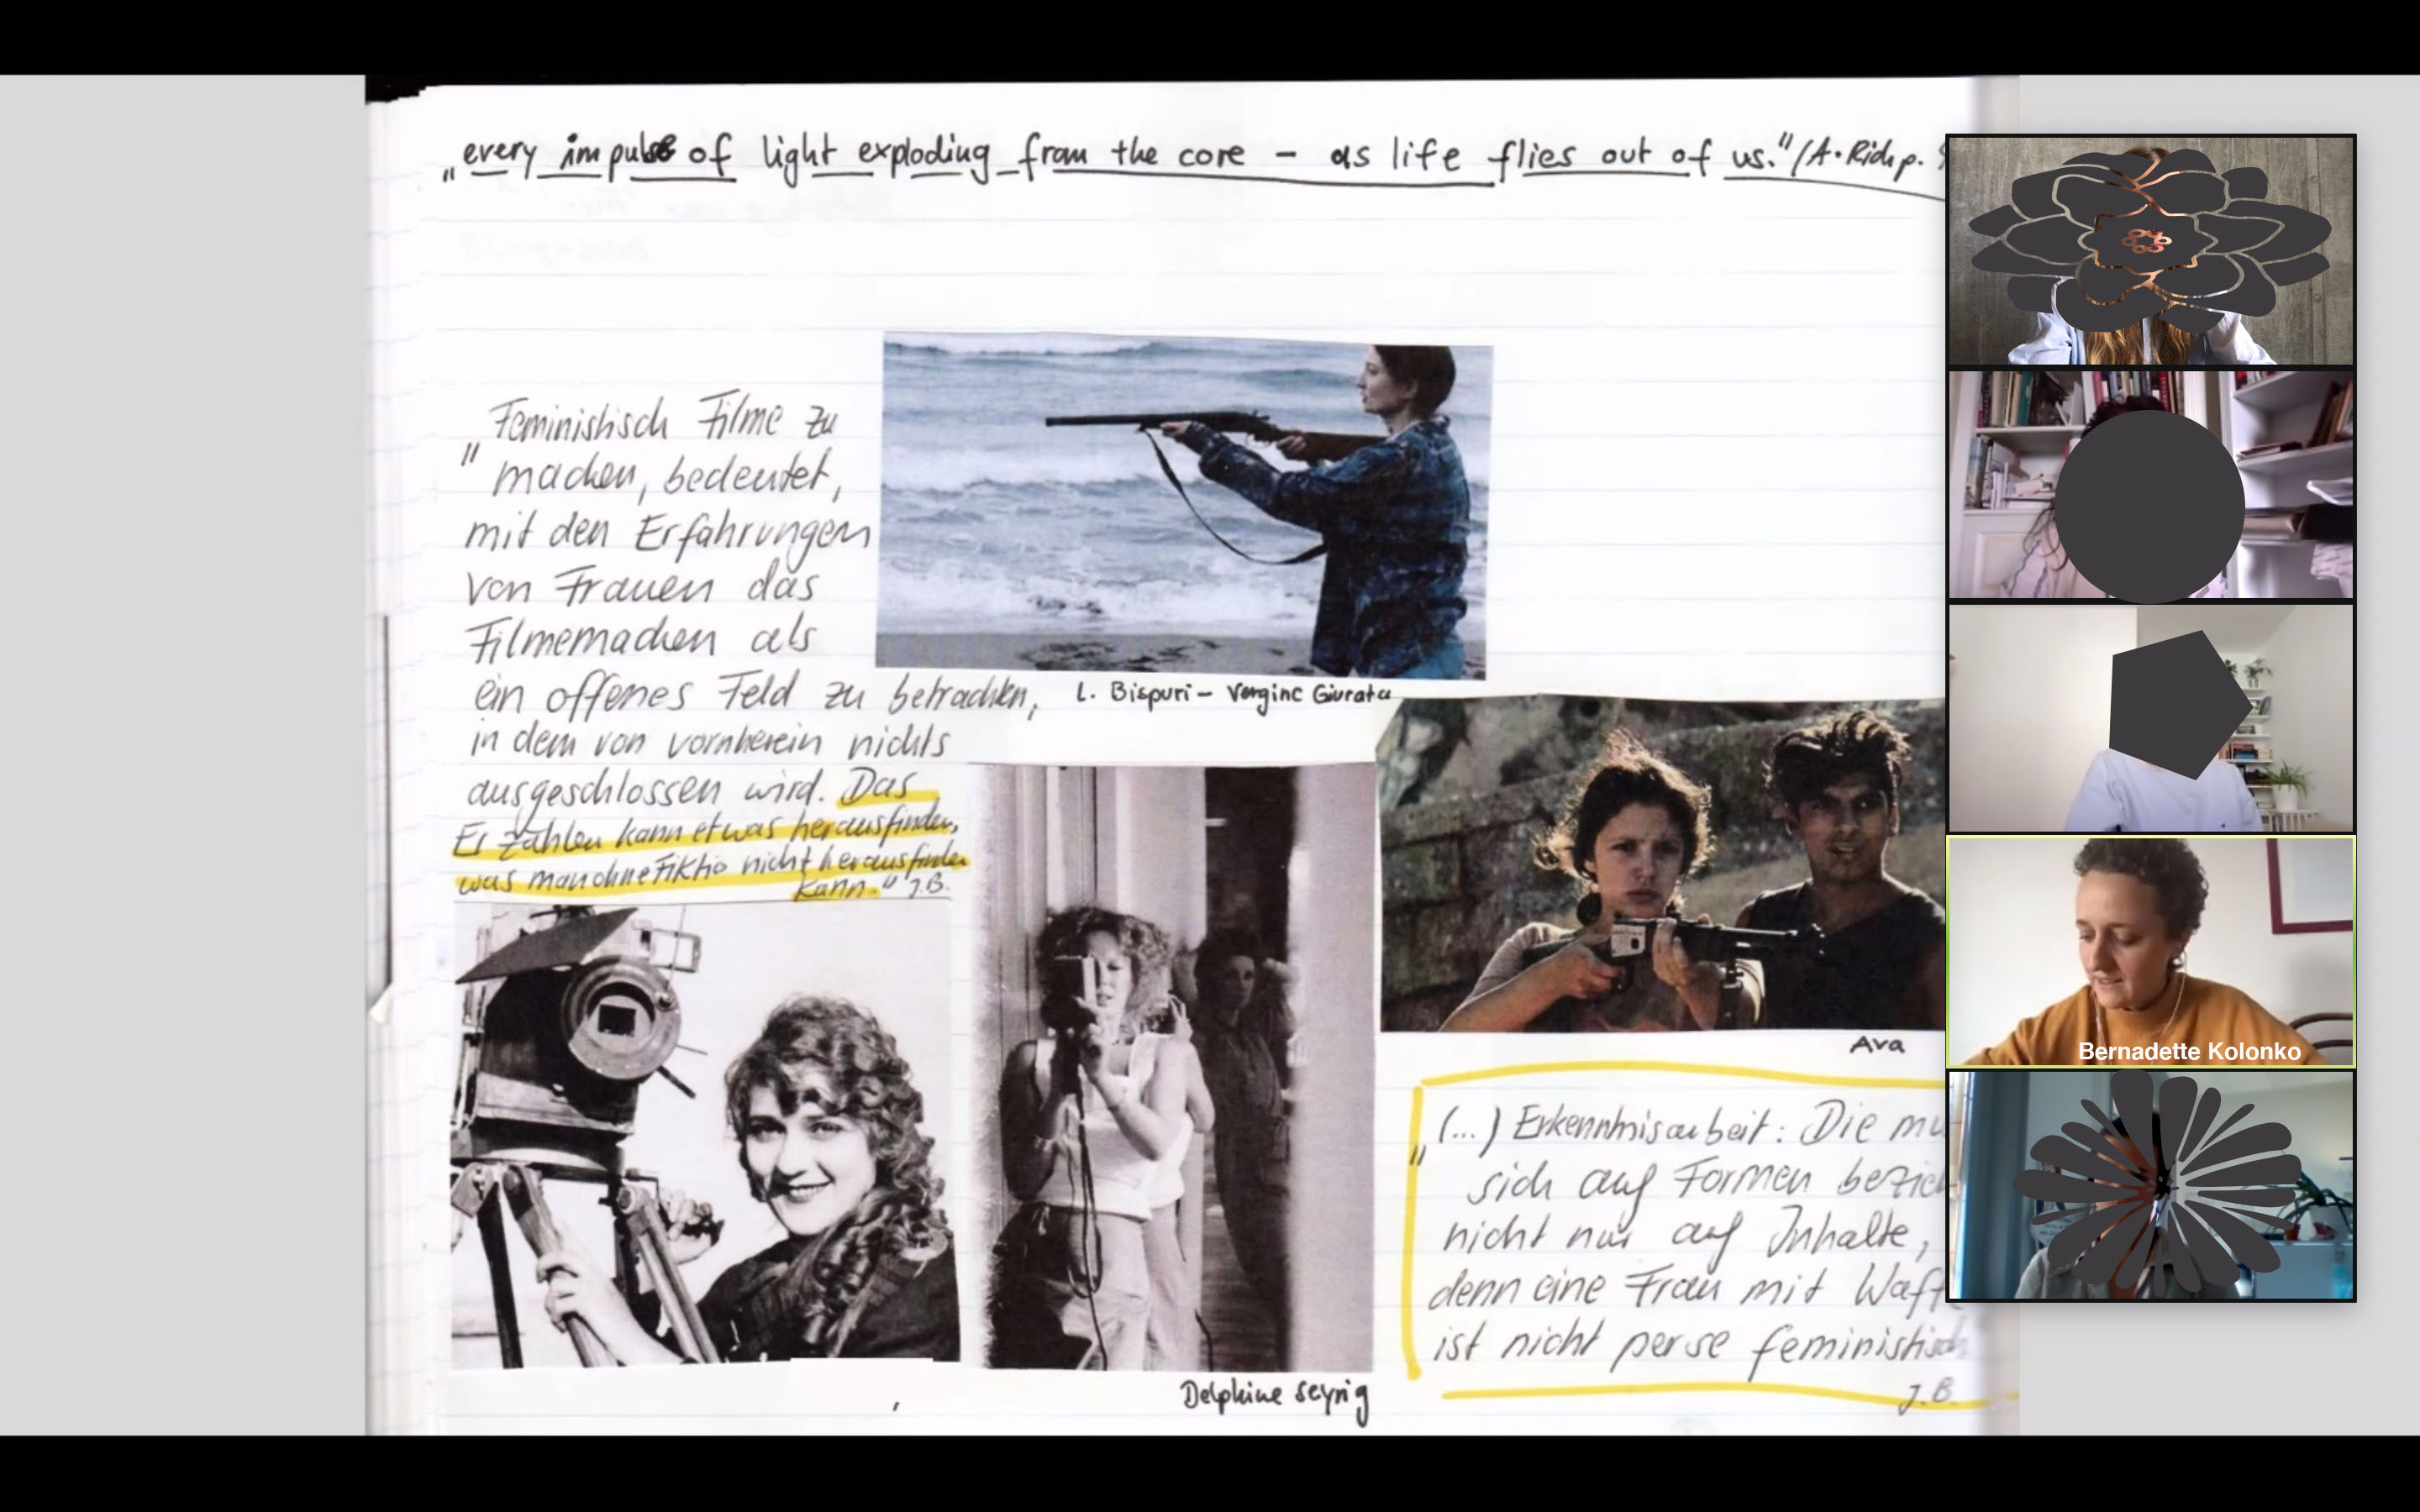 „every impulse of light exploding from the core – as life flies out of us."/A. Rich p.
„Feministisch Filme zu
machen, bedeutet,
mit den Erfahrungen
von Frauen das
Filmemachen als
ein offenes Feld zu betrachten,
in dem von vornherein nichts
ausgeschlossen wird. Das
Erzählen kann etwas herausfinden,
was man ohne Fiktio nicht herausfinden
kann." J.B.
L. Bispuri – Vergine Giurata
Ava
Delphine Seyrig
„(...) Erkenntnisarbeit: Die mu
sich auf Formen bezieh
nicht nur auf Inhalte,
denn eine Frau mit Waffe
ist nicht per se feministisch
J.B.
Bernadette Kolonko